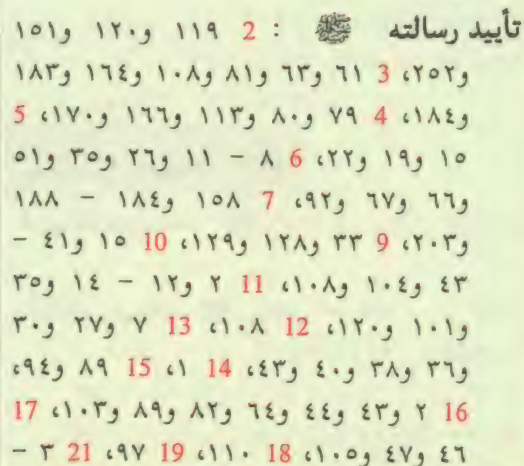 تأييد رسالته ﷺ : 2 ١١٩ و١٢٠ و١٥١
و٢٥٢، 3 ٦١ و٦٣ و٨١ و١٠٨ و١٦٤ و١٨٣
و١٨٤، 4 ٧٩ و٨٠ و١١٣ و١٦٦ و١٧٠، 5
١٥ و١٩ و٢٢، 6 ٨ - ١١ و٢٦ و٣٥ و٥١
و٦٦ و٦٧ و٩٢، 7 ١٥٨ و١٨٤ - ١٨٨
و٢٠٣، 9 ٣٣ و١٢٨ و١٢٩، 10 ١٥ و٤١ -
٤٣ و١٠٤ و١٠٨، 11 ٢ و١٢ - ١٤ و٣٥
و١٠١ و١٢٠، 12 ١٠٨، 13 ٧ و٢٧ و٣٠
و٣٦ و٣٨ و٤٠ و٤٣، 14 ١، 15 ٨٩ و٩٤،
16 ٢ و٤٣ و٤٤ و٦٤ و٨٢ و٨٩ و١٠٣، 17
٤٦ و٤٧ و١٠٥، 18 ١١٠، 19 ٩٧، 21 ٣ -